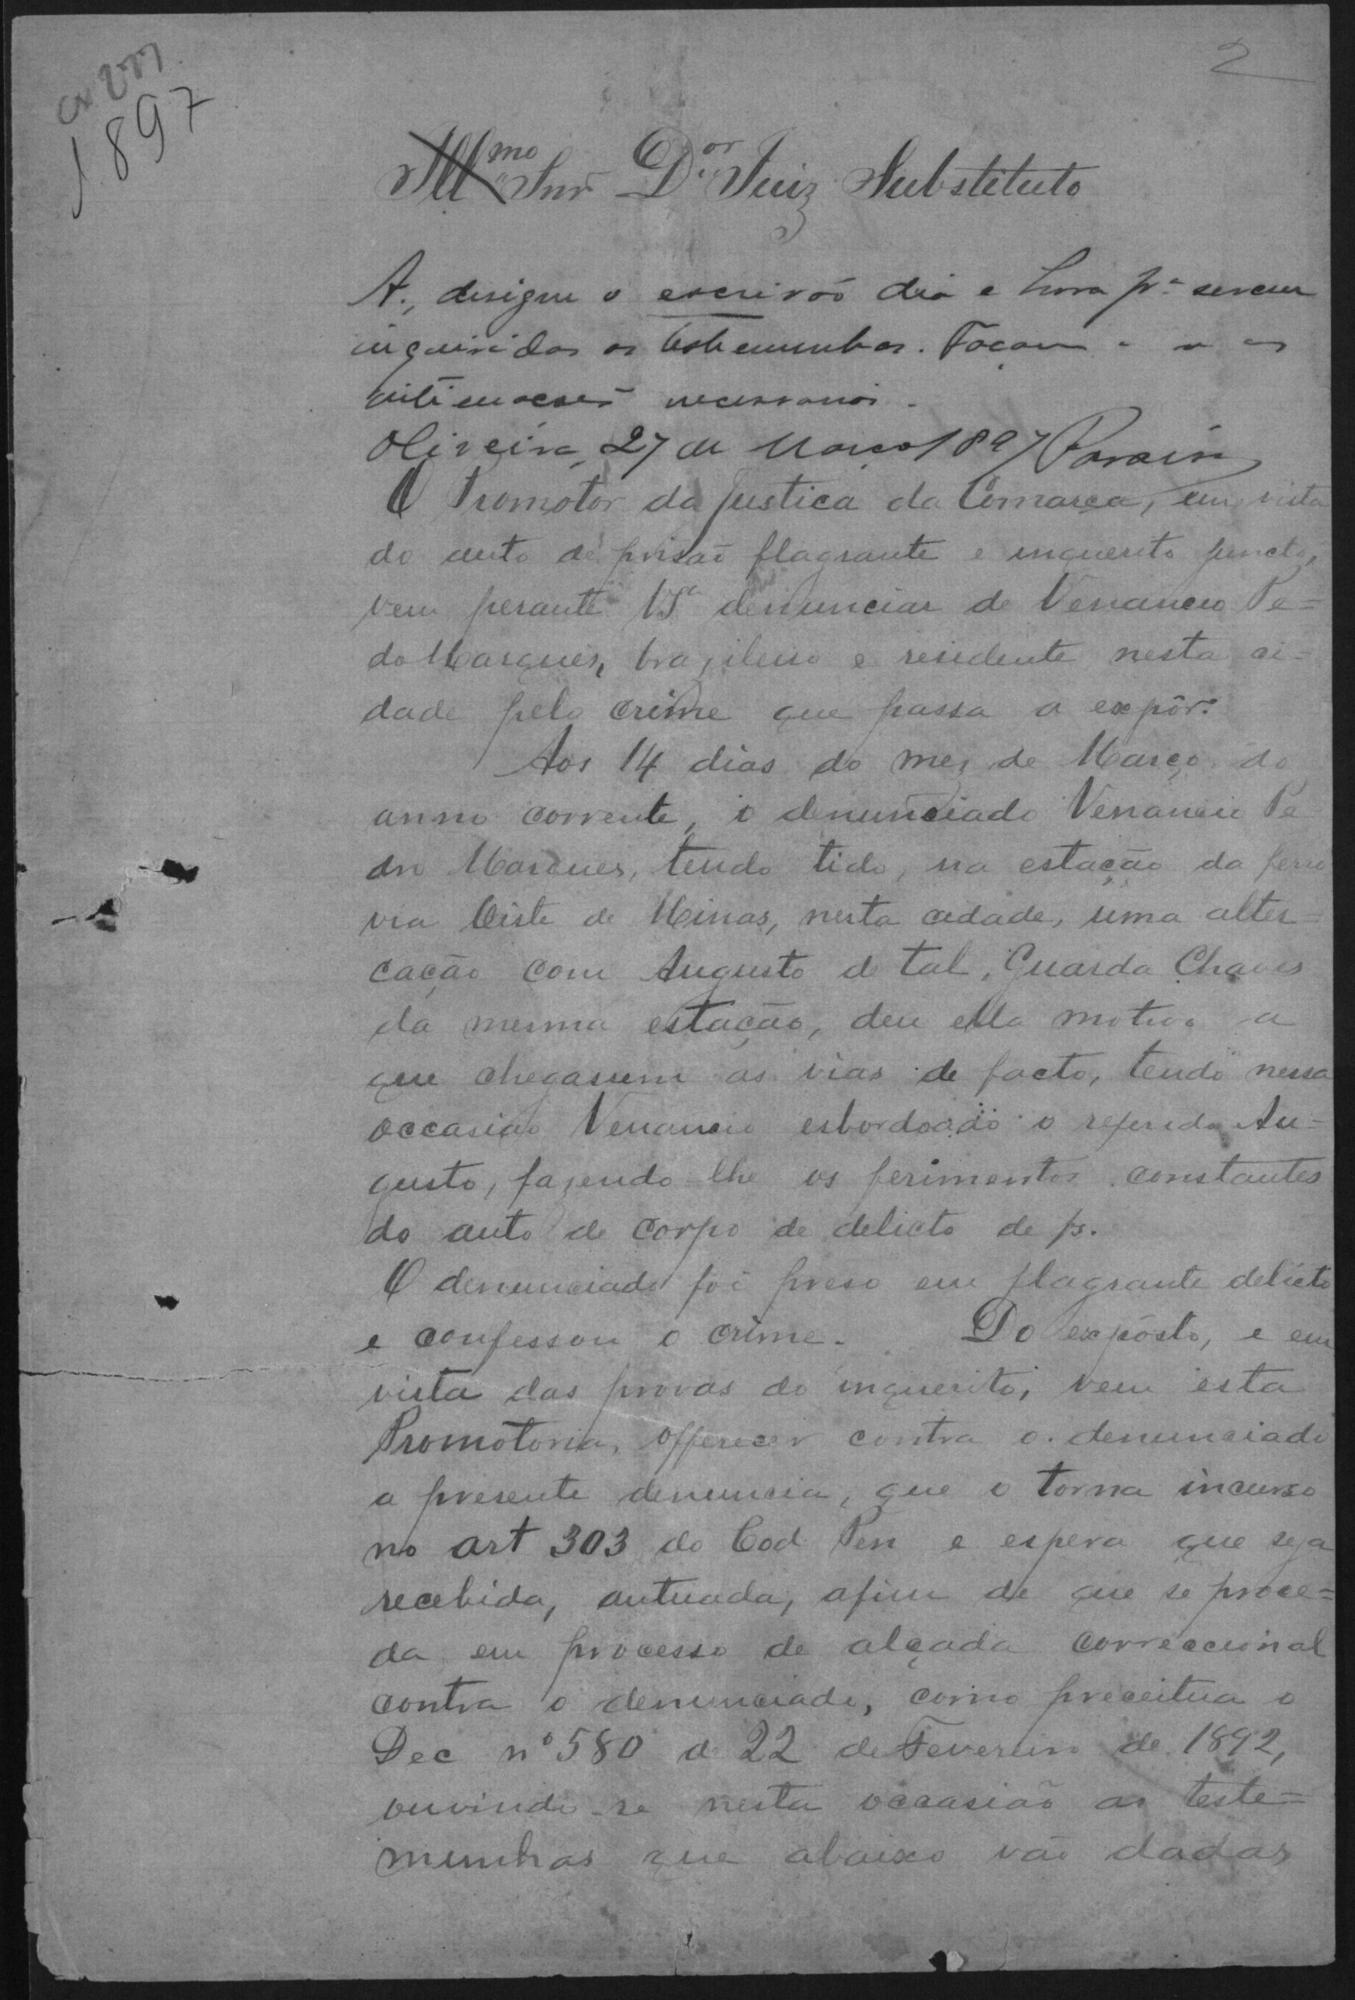 2
1897
Illmo Snr Dor Juiz Substituto
A., designe o escrivão dia e hora pa serem
inqueridas as testemunhas. Façam-se as
intimações necessarias.
Oliveira, 27 de Março 1897
O Promotor da Justiça da Comarca, em vista
do auto de prisão flagrante e inquerito juncto,
vem perante VSa denunciar de Venancio Pe=
do Marques, brazileiro e residente nesta ci=
dade pelo crime que passa a expôr:
Aos 14 dias do mez de Março do
anno corrente, o denunciado Venancio Pe
dro Marques, tendo tido, na estação da ferro
via Oeste de Minas, nesta cidade, uma alter=
cação com Augusto de tal, Guarda Chaves
da mesma estação, deu ella motivo a
que chegassem as vias de facto, tendo nessa
occasião Venancio esbordoado o referido Au=
gusto, fazendo-lhe os ferimentos constantes
do auto de corpo de delicto de fs.
O denunciado foi preso em flagrante delicto
e confessou o crime. Do expôsto, e em
vista das provas do inquerito, vem esta
Promotoria, offerecer contra o denunciado
a presente denuncia, que o torna incurso
no art 303 do Cod Pen e espera que seja
recebida, autuada, afim de que se proce=
da em processo de alçada correccional
contra o denunciado, como preceitua o
Dec nº 580 de 22 de Fevereiro de 1892,
ouvindo-se nesta occasião as teste=
munhas que abaixo vão dadas